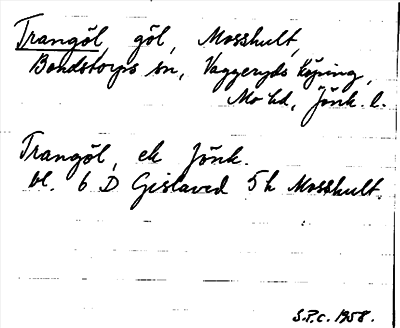 Trangöl, göl, Mosshult,
Bondstorps sn, Vaggeryds köping,
Mo hd, Jönk. l.
Trangöl, ek Jönk.
bl. 6 D Gislaved 5 h Mosshult.
S.P.C. 1958.